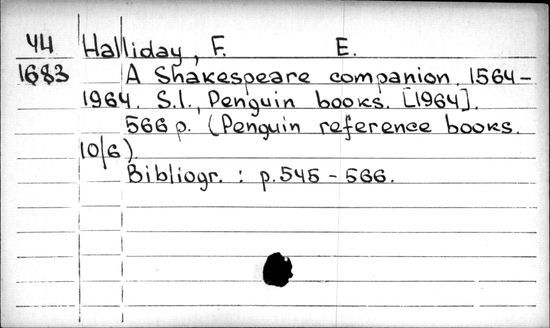 44 Halliday, F. E.
1683 A Shakespeare companion 1564-
1964. S.l., Penguin books. [1964].
566 p. (Penguin reference books.
10/6)
Bibliogr. : p.545 - 566.